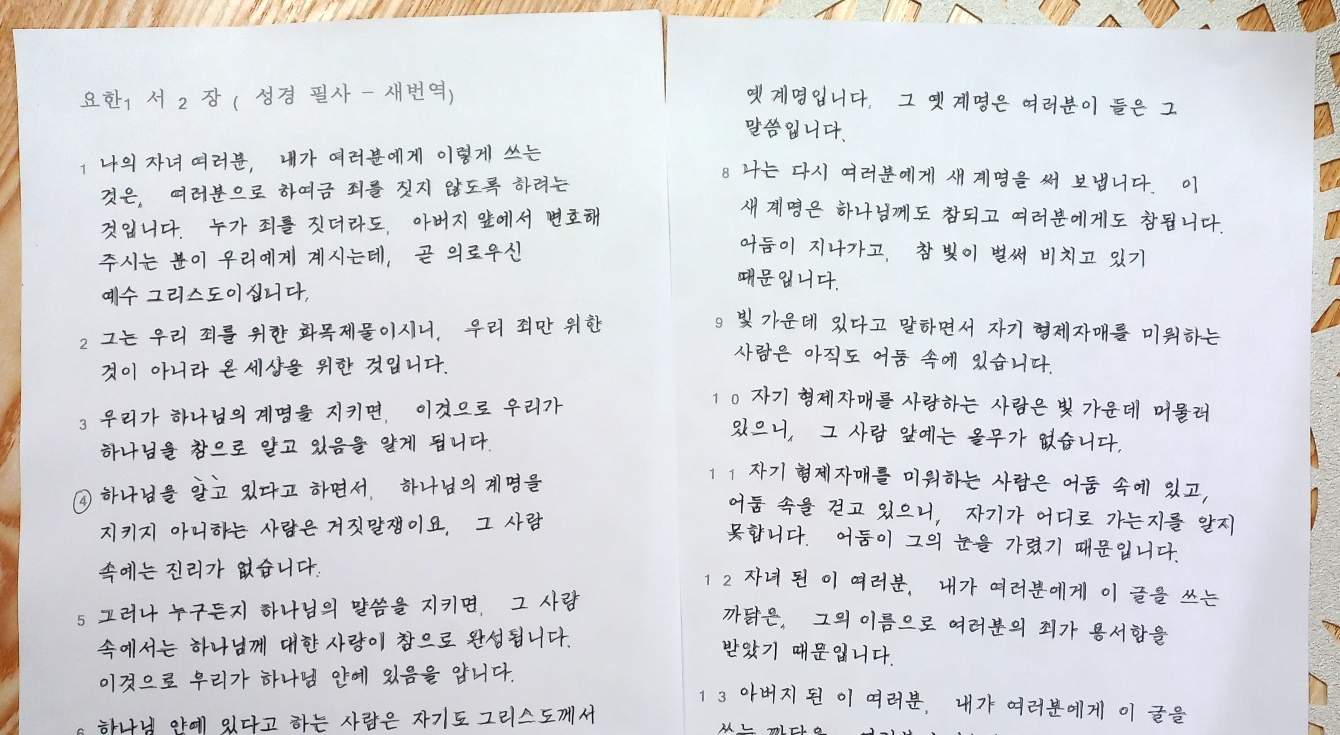 요한1 서 2 장 ( 성경 필사 - 새번역)
1 나의 자녀 여러분, 내가 여러분에게 이렇게 쓰는
것은, 여러분으로 하여금 죄를 짓지 않도록 하려는
것입니다. 누가 죄를 짓더라도, 아버지 앞에서 변호해
주시는 분이 우리에게 계시는데, 곧 의로우신
예수 그리스도이십니다.
2 그는 우리 죄를 위한 화목제물이시니, 우리 죄만 위한
것이 아니라 온 세상을 위한 것입니다.
3 우리가 하나님의 계명을 지키면, 이것으로 우리가
하나님을 참으로 알고 있음을 알게 됩니다.
④ 하나님을 알고 있다고 하면서, 하나님의 계명을
지키지 아니하는 사람은 거짓말쟁이요, 그 사람
속에는 진리가 없습니다.
5 그러나 누구든지 하나님의 말씀을 지키면, 그 사람
속에서는 하나님께 대한 사랑이 참으로 완성됩니다.
이것으로 우리가 하나님 안에 있음을 압니다.
6 하나님 안에 있다고 하는 사람은 자기도 그리스도께서
옛 계명입니다. 그 옛 계명은 여러분이 들은 그
말씀입니다.
8 나는 다시 여러분에게 새 계명을 써 보냅니다. 이
새 계명은 하나님께도 참되고 여러분에게도 참됩니다.
어둠이 지나가고, 참 빛이 벌써 비치고 있기
때문입니다.
9 빛 가운데 있다고 말하면서 자기 형제자매를 미워하는
사람은 아직도 어둠 속에 있습니다.
1 0 자기 형제자매를 사랑하는 사람은 빛 가운데 머물러
있으니, 그 사람 앞에는 올무가 없습니다.
1 1 자기 형제자매를 미워하는 사람은 어둠 속에 있고,
어둠 속을 걷고 있으니, 자기가 어디로 가는지를 알지
못합니다. 어둠이 그의 눈을 가렸기 때문입니다.
1 2 자녀 된 이 여러분, 내가 여러분에게 이 글을 쓰는
까닭은, 그의 이름으로 여러분의 죄가 용서함을
받았기 때문입니다.
1 3 아버지 된 이 여러분, 내가 여러분에게 이 글을